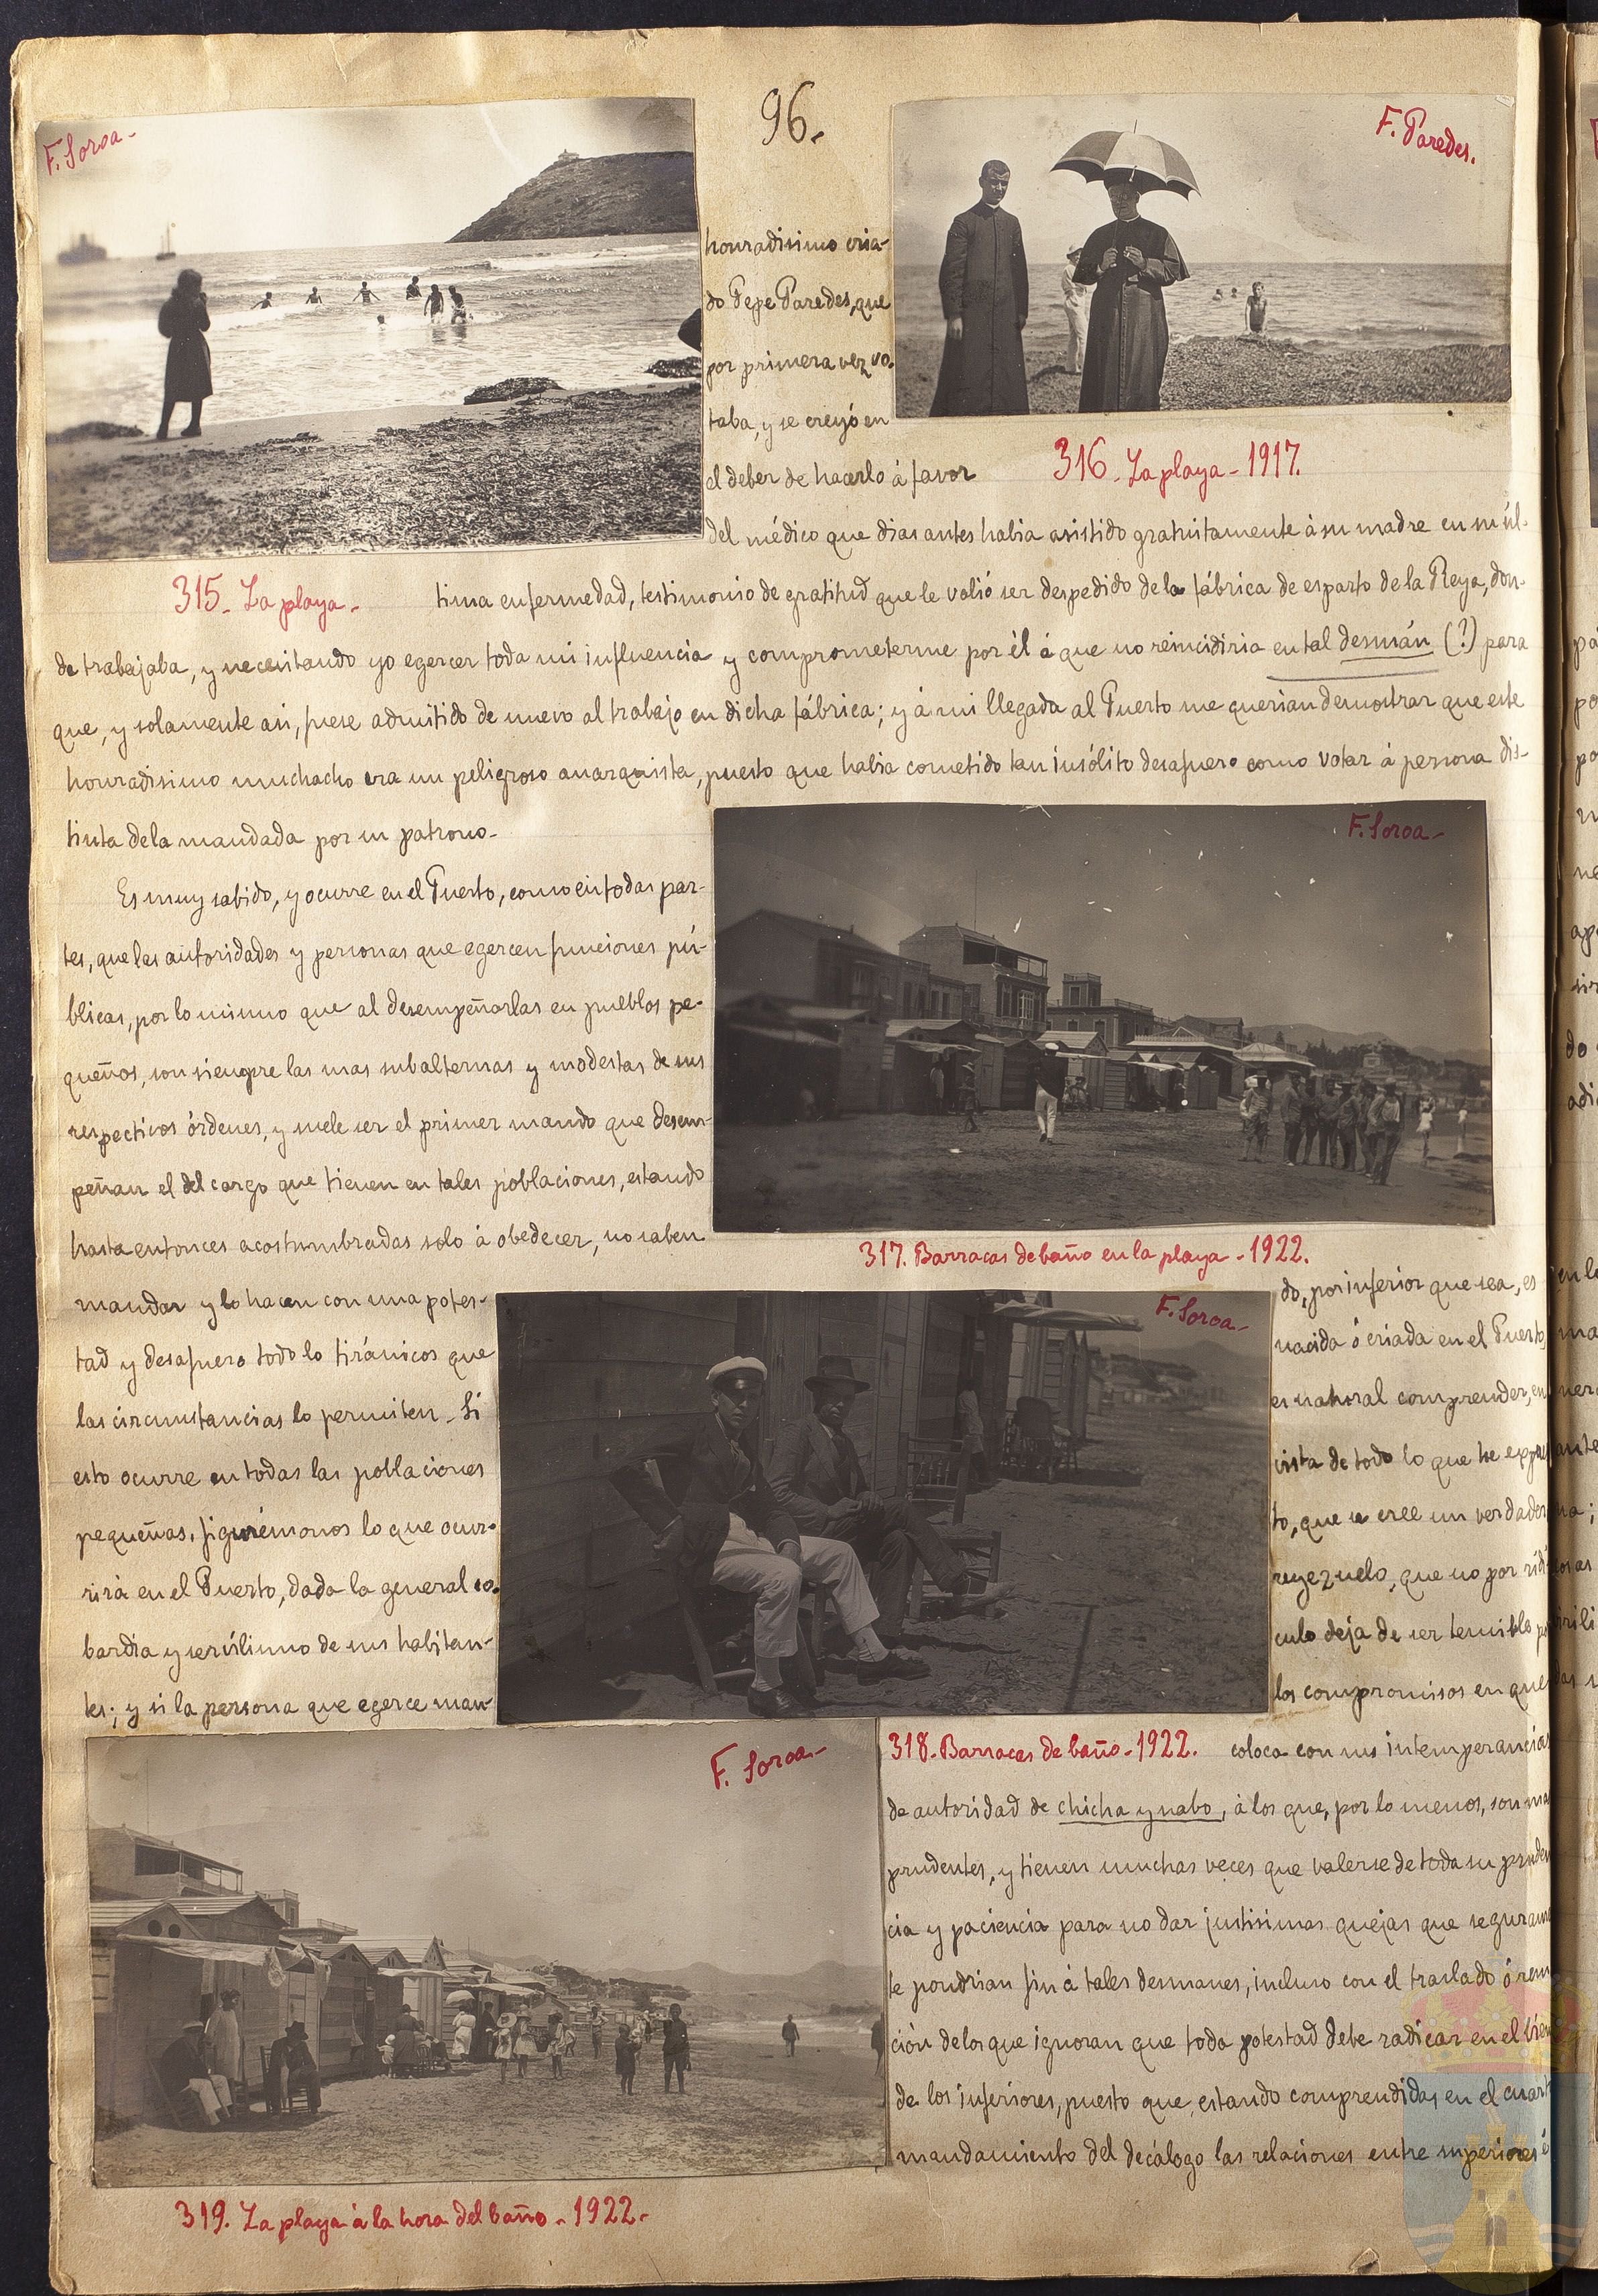 96.
F. Soroa-
F. Paredes.
honradisimo cria-
do Pepe Paredes, que
por primera vez vo-
taba, y se creyó en
el deber de hacerlo á favor
316 - La playa - 1917.
del médico que dias antes habia asistido gratuitamente á su madre en su úl-
315 - La playa -
tima enfermedad, testimonio de gratitud que le valió ser despedido de la fábrica de esparto de la Reya, don-
de trabajaba, y necesitando yo egercer toda mi influencia y comprometerme por él á que no reincidiria en tal desmán (?) para
que, y solamente asi, fuese admitido de nuevo al trabajo en dicha fábrica; y á mi llegada al Puerto me querian demostrar que este
honradisimo muchacho era un peligroso anarquista, puesto que habia cometido tan insólito desafuero como votar á persona dis-
tinta de la mandada por su patrono-
F. Soroa-
Es muy sabido, y ocurre en el Puerto, como en todas par-
tes, que las autoridades y personas que egercen funciones pú-
blicas, por lo mismo que al desempeñarlas en pueblos pe-
queños, son siempre las mas subalternas y modestas de sus
respectivos órdenes, y suele ser el primer mando que desem-
peñan el del cargo que tienen en tales poblaciones, estando
hasta entonces acostumbradas solo á obedecer, no saben
317. Barracas de baño en la playa - 1922.
mandar y lo hacen con una potes-
tad y desafuero todo lo tiránicos que
las circunstancias lo permiten - Si
esto ocurre en todas las poblaciones
pequeñas, figurémonos lo que ocur-
rirá en el Puerto, dada la general co-
bardia y servilismo de sus habitan-
tes; y si la persona que egerce man-
F. Soroa-
do, por inferior que sea, es
nacida ó criada en el Puerto,
es natural comprender, en
vista de todo lo que he expues
to, que se cree un verdadero
reyezuelo, que no por ridí
culo deja de ser temible por
los compromisos en que
318 - Barracas de baño - 1922.
coloca con sus intemperancias
de autoridad de chicha y nabo, á los que, por lo menos, son mas
prudentes, y tienen muchas veces que valerse de toda su pruden
cia y paciencia para no dar justisimas quejas que seguramen
te pondrian fin á tales desmanes, incluso con el traslado ó remo
ción de los que ignoran que toda potestad debe radicar en el bien
de los inferiores, puesto que, estando comprendidas en el cuarto
mandamiento del decálogo las relaciones entre superiores é
F. Soroa-
319. La playa á la hora del baño - 1922-